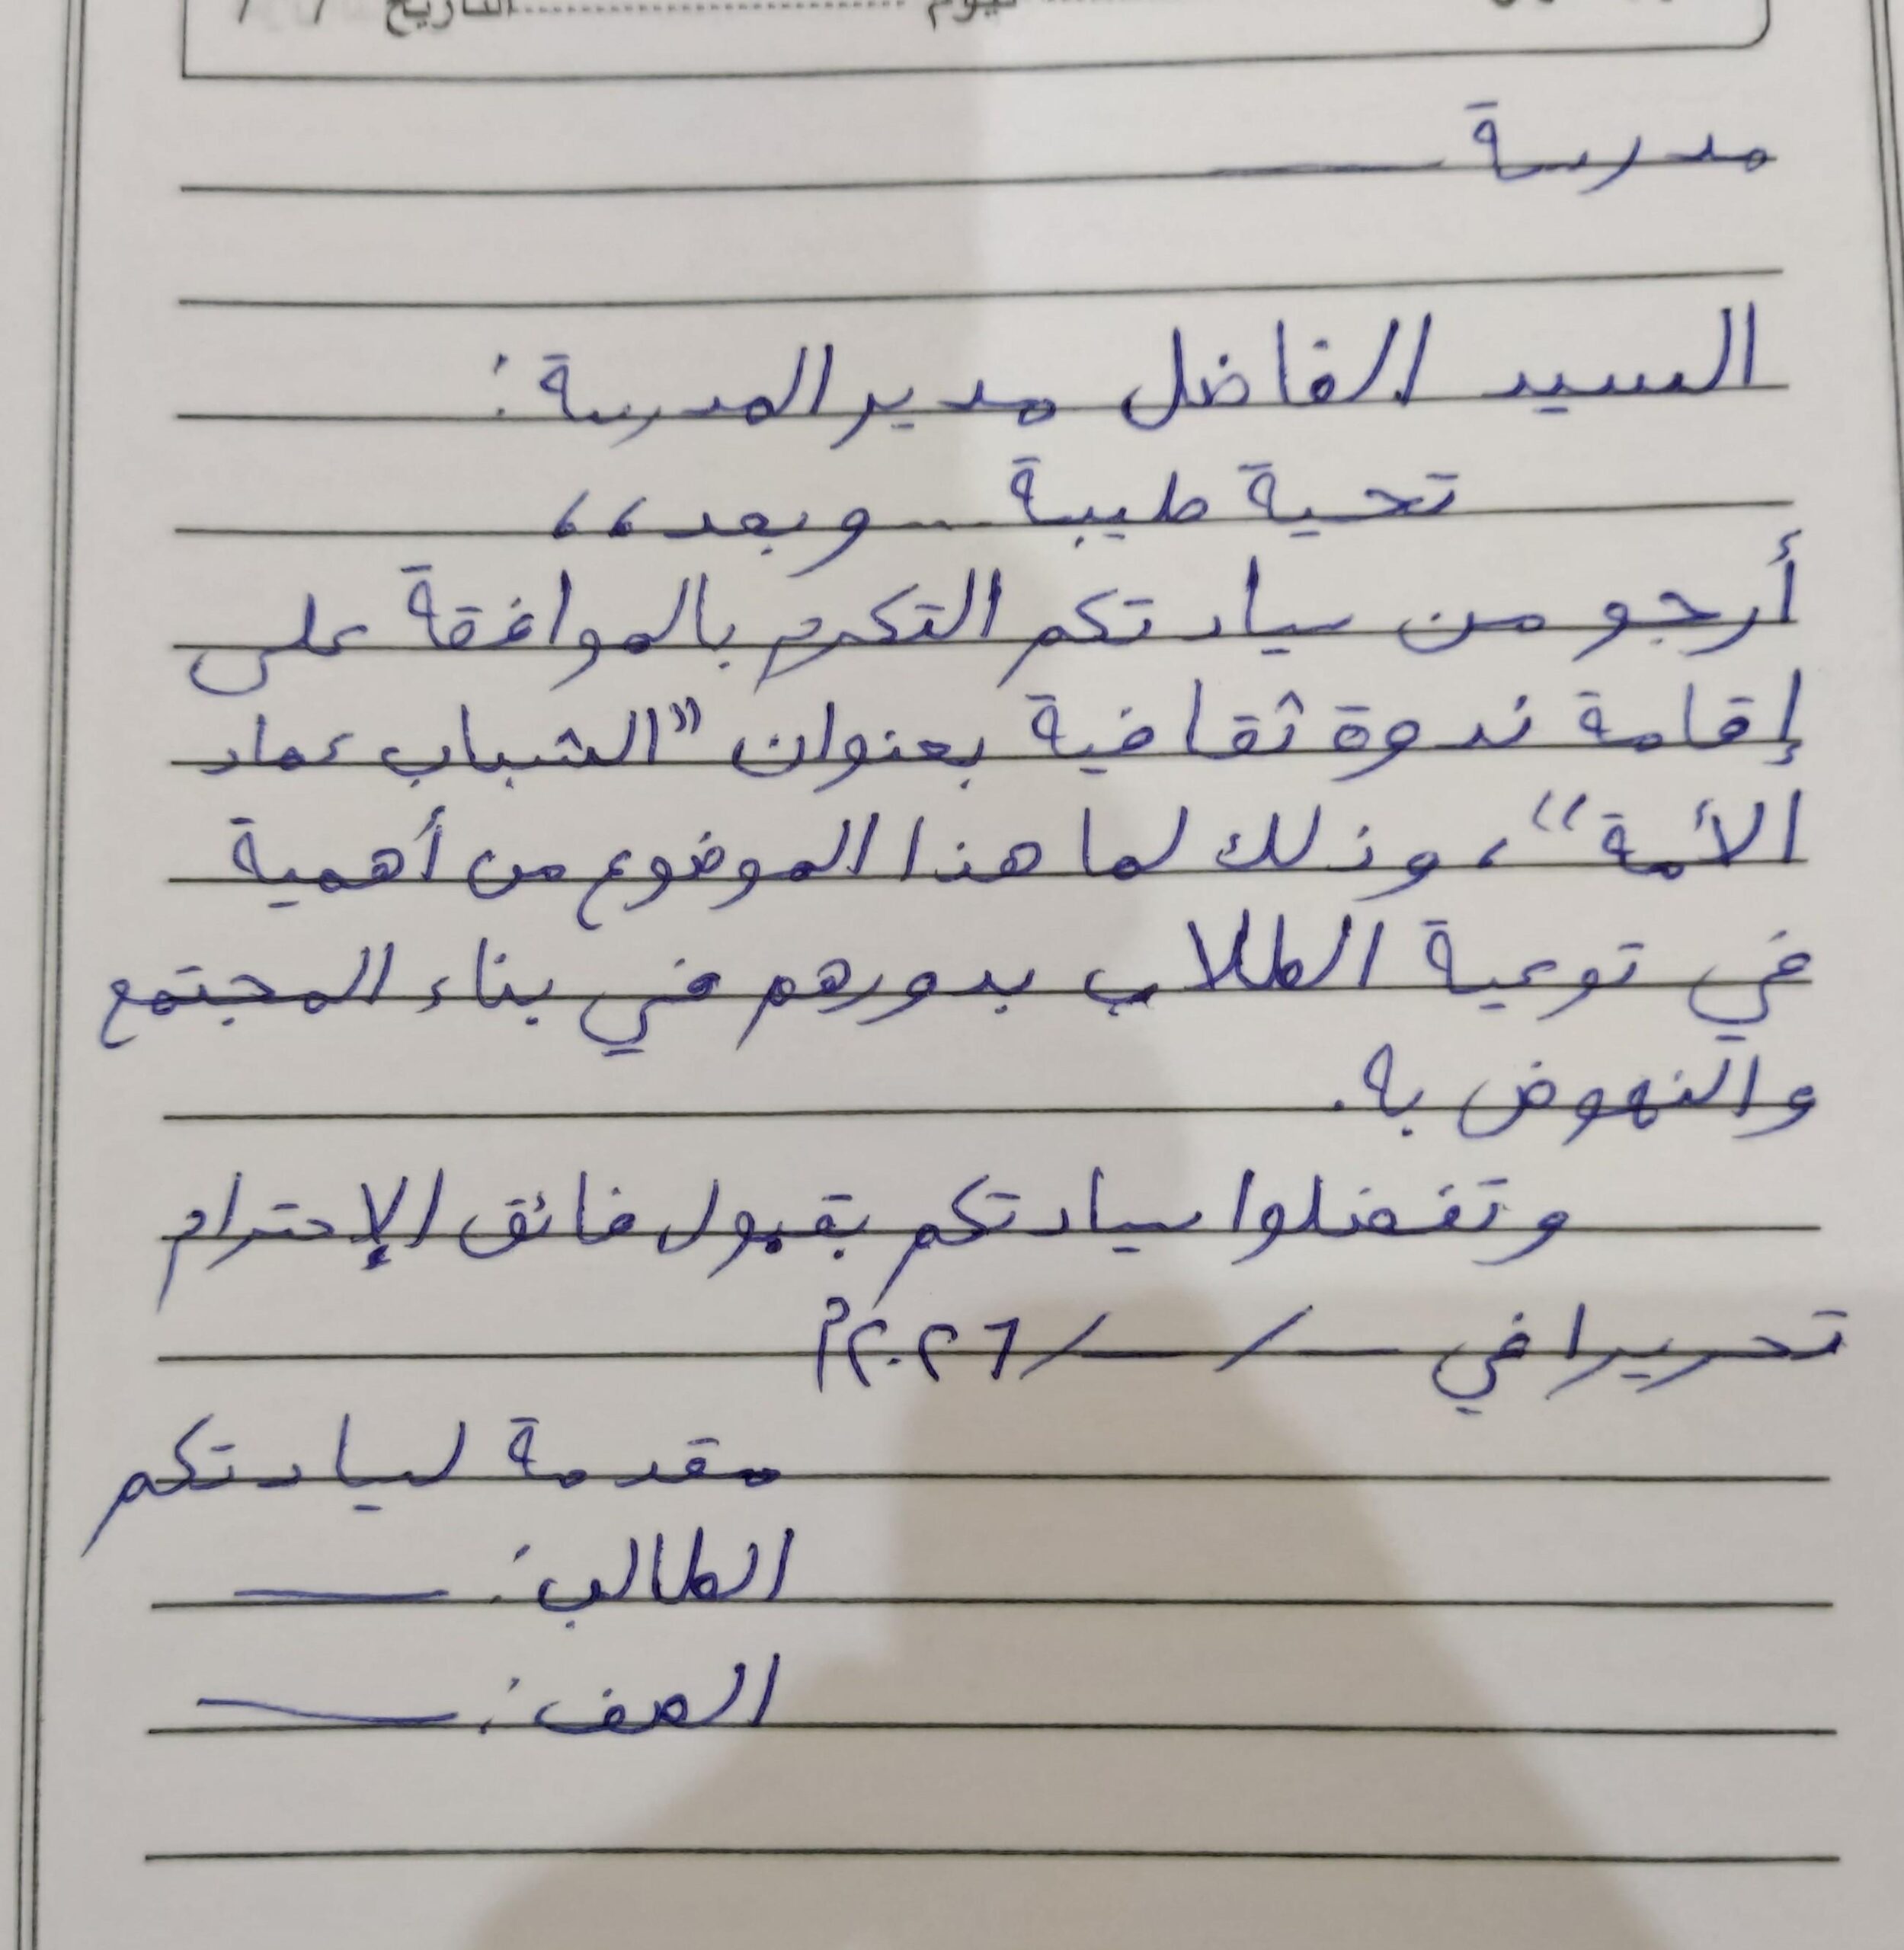 اليوم ........................ التاريخ / /
مدرسة ـــــــ
السيد الفاضل مدير المدرسة:
تحية طيبة ... وبعد،،
أرجو من سيادتكم التكرم بالموافقة على
إقامة ندوة ثقافية بعنوان "الشباب عماد
الأمة"، وذلك لما هذا الموضوع من أهمية
في توعية الطلاب بدورهم في بناء المجتمع
والنهوض به.
وتفضلوا سيادتكم بقبول فائق الإحترام
تحريرا في ــــ / ــــ / ٢٠٢٦م
مقدمة لسيادتكم
الطالب: ـــــــ
الصف: ـــــــ